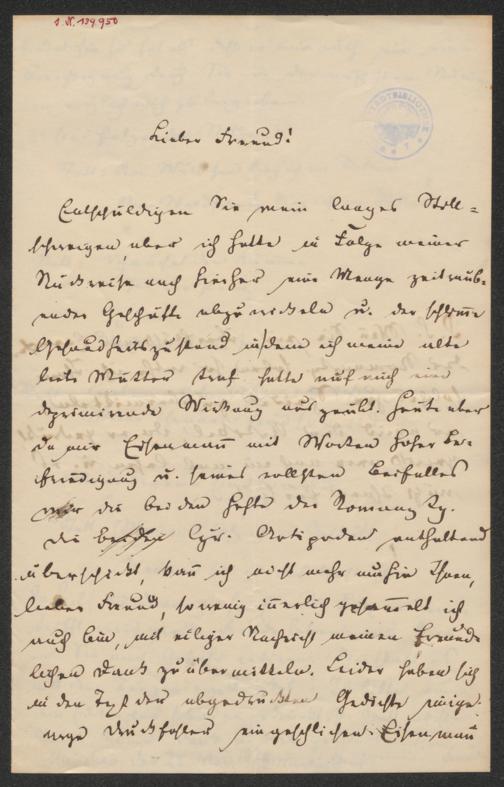 I. N. 139950
STADTBIBLIOTHEK
Lieber Freund!
Entschuldigen Sie mein langes Still=
schweigen, aber ich hatte in Folge meiner
Rückreise nach hierher eine Menge zeitraub=
ender Geschäfte abzuwickeln u. der schlimme
Gesundheitszustand in dem ich meine alte
liebe Mutter traf hatte auf mich eine
deprimirende Wirkung ausgeübt. Heute aber
da mir Eisenmann mit Worten hoher Be=
friedigung u. seines vollsten Beifalles
die beiden Hefte der Romanz Ztg.
die beiden Lyr. Antipoden enthaltend
überschickt, kann ich nicht mehr umhin Ihnen,
lieber Freund, so wenig innerlich gesammelt ich
auch bin, mit eiliger Nachricht meinen freund
lichen Dank zu übermitteln. Leider haben sich
in den Text der abgedruckten Gedichte einige
arge Druckfehler eingeschlichen. Eisenmann